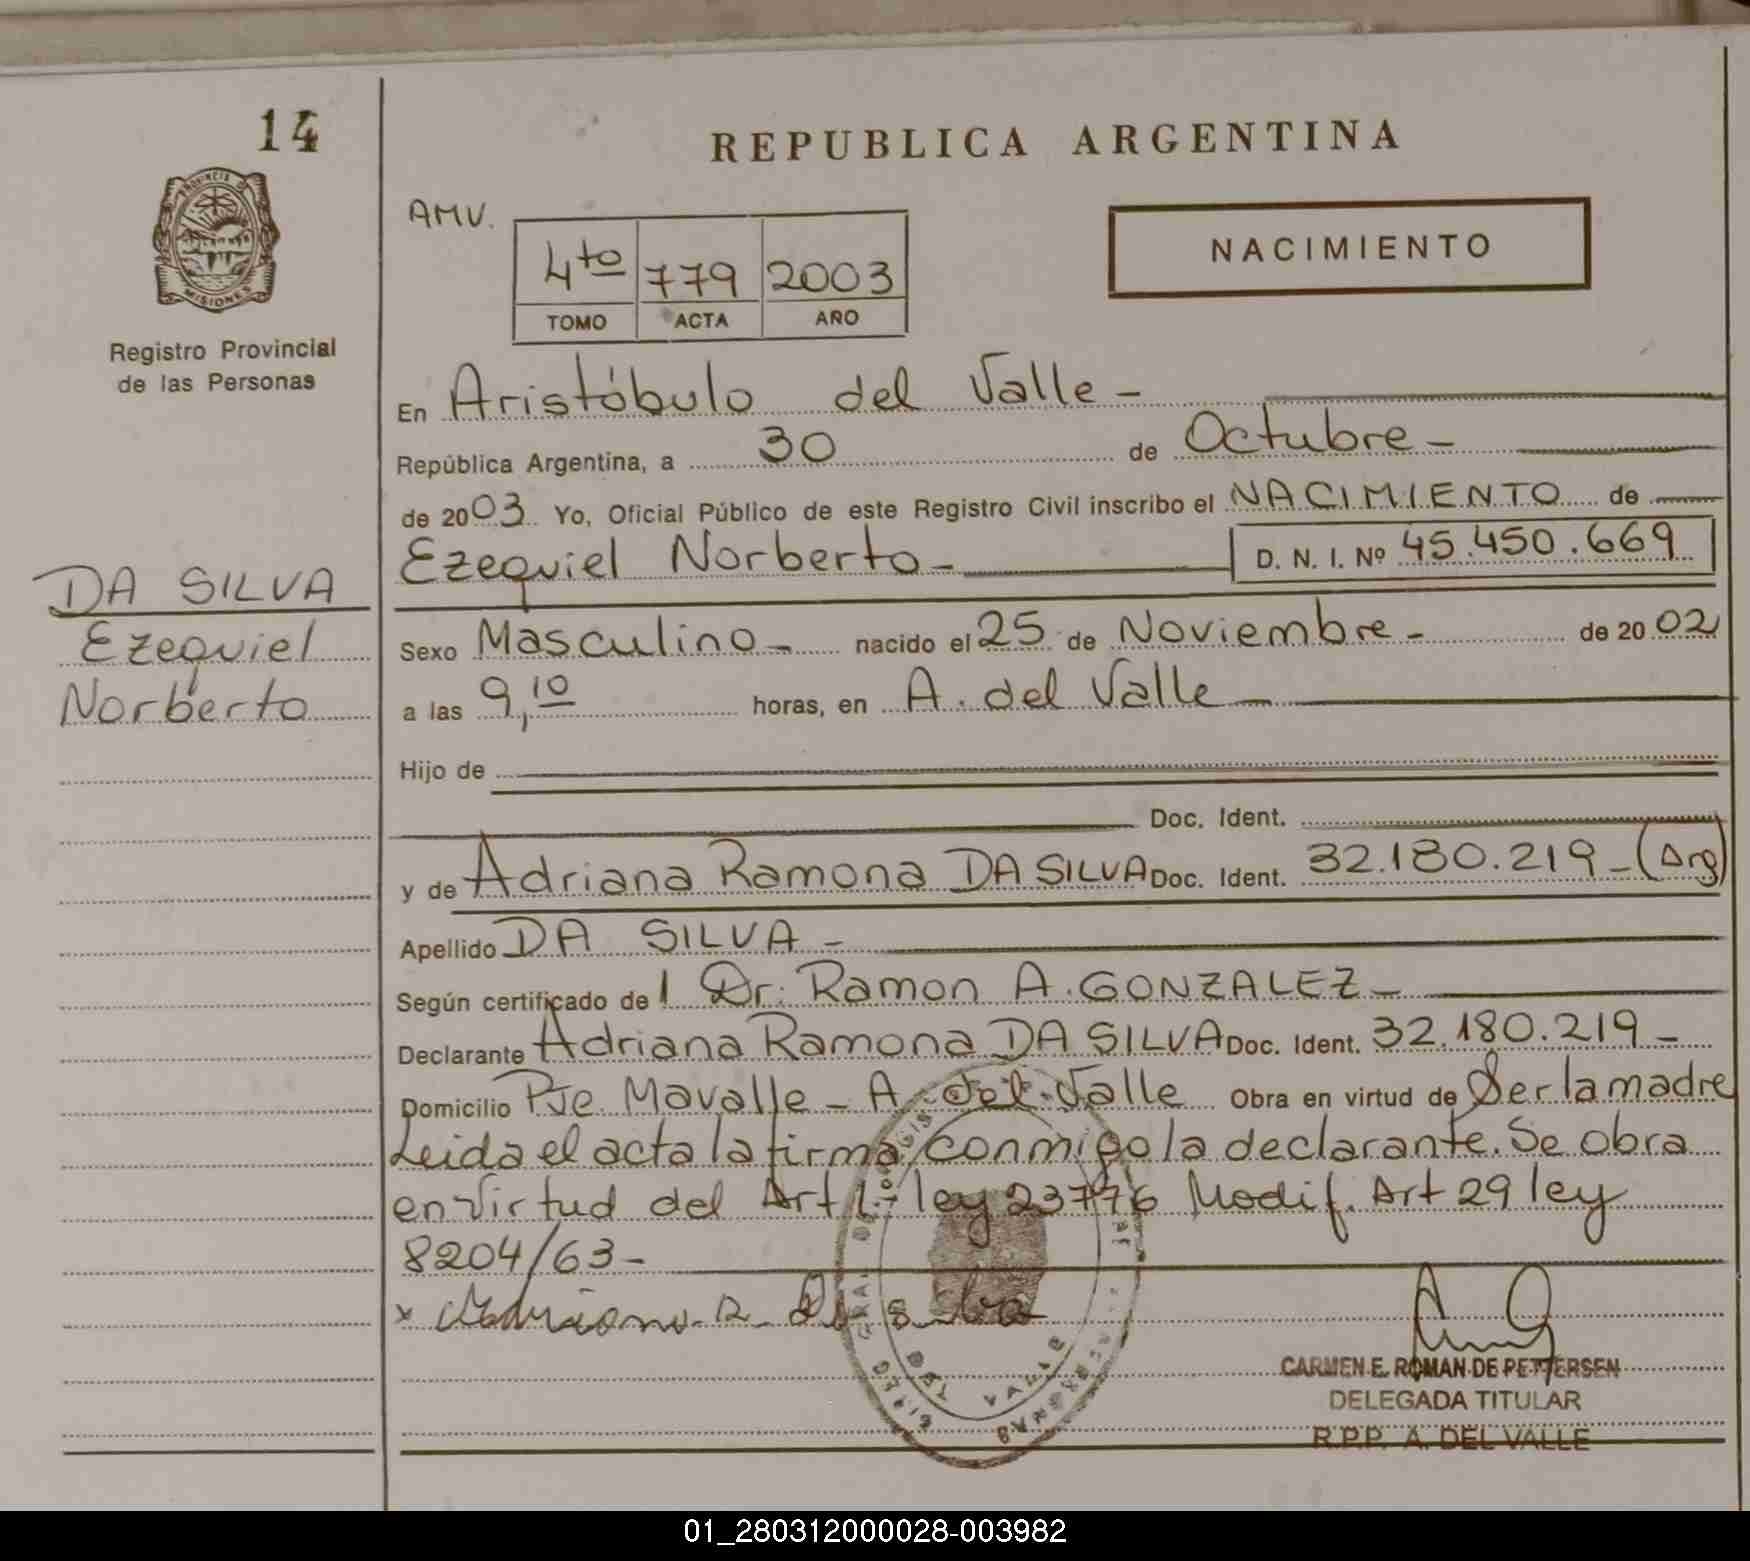 14
PROVINCIA DE
MISIONES
Registro Provincial
de las Personas
DA SILVA
Ezequiel
Norberto
REPUBLICA ARGENTINA
AMV.
4to 779 2003
TOMO ACTA AÑO
NACIMIENTO
En Aristóbulo del Valle -
República Argentina, a 30 de Octubre -
de 2003 Yo, Oficial Público de este Registro Civil inscribo el NACIMIENTO de
Ezequiel Norberto - D. N. I. Nº 45.450.669
Sexo Masculino - nacido el 25 de Noviembre - de 2002
a las 9,10 horas, en A. del Valle -
Hijo de
Doc. Ident.
y de Adriana Ramona DA SILVA Doc. Ident. 32.180.219 - (Arg)
Apellido DA SILVA -
Según certificado de l Dr. Ramon A. GONZALEZ -
Declarante Adriana Ramona DA SILVA Doc. Ident. 32.180.219 -
Domicilio Pje Mavalle - A. del Valle Obra en virtud de Ser la madre
Leida el acta la firma conmigo la declarante. Se obra
en virtud del Art 1. ley 23776 Modif. Art 29 ley
8204/63 -
x R. Da Silva
CARMEN E. ROMAN DE PETTERSEN
DELEGADA TITULAR
R.P.P. A. DEL VALLE
01_280312000028-003982